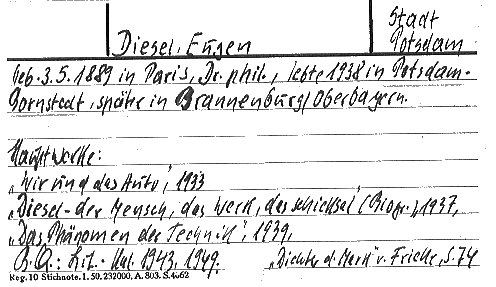 Stadt
Diesel, Eugen Potsdam
geb. 3.5.1889 in Paris, Dr. phil., lebte 1938 in Potsdam-
Bornstedt, später in Brannenburg/Oberbayern.
Hauptwerke:
„Wir und das Auto", 1933
„Diesel - der Mensch, das Werk, das Schicksal" (Biogr.), 1937,
„Das Phänomen der Technik", 1939,
B. Q.: Lit.-Kal. 1943, 1949. „Dichter d. Mark" v. Fricke, S. 74
Reg. 10 Stichnote. 1. 50. 232000, A. 803. S. 4062